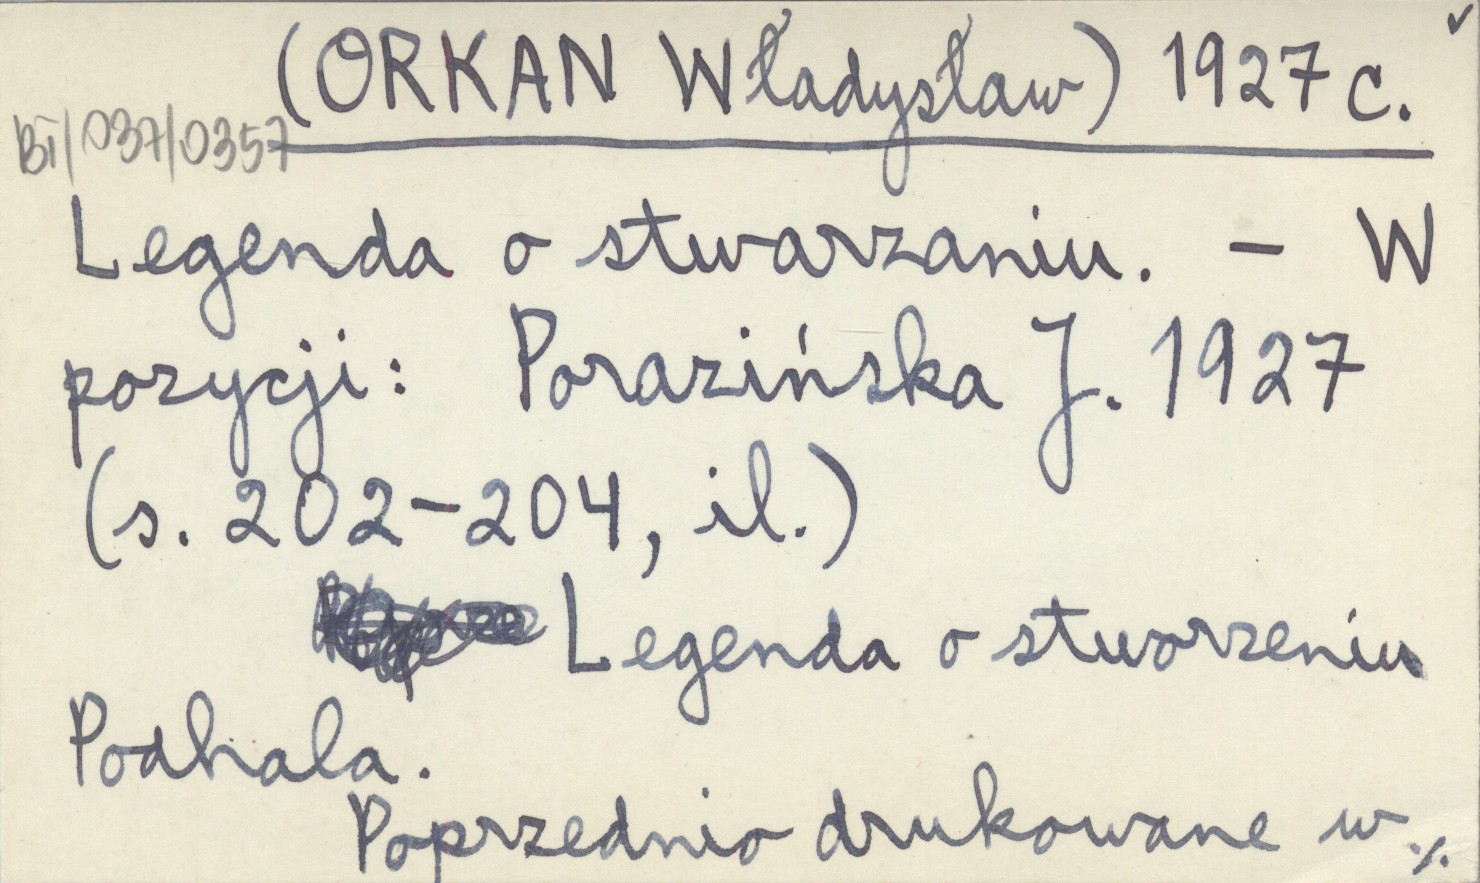 (ORKAN Władysław) 1927 c.
BI/037/0357
Legenda o stwarzaniu. - W
pozycji: Porazińska J. 1927
(s. 202-204, il.)
Legenda o stworzeniu
Podhala.
Poprzednio drukowane w ./.